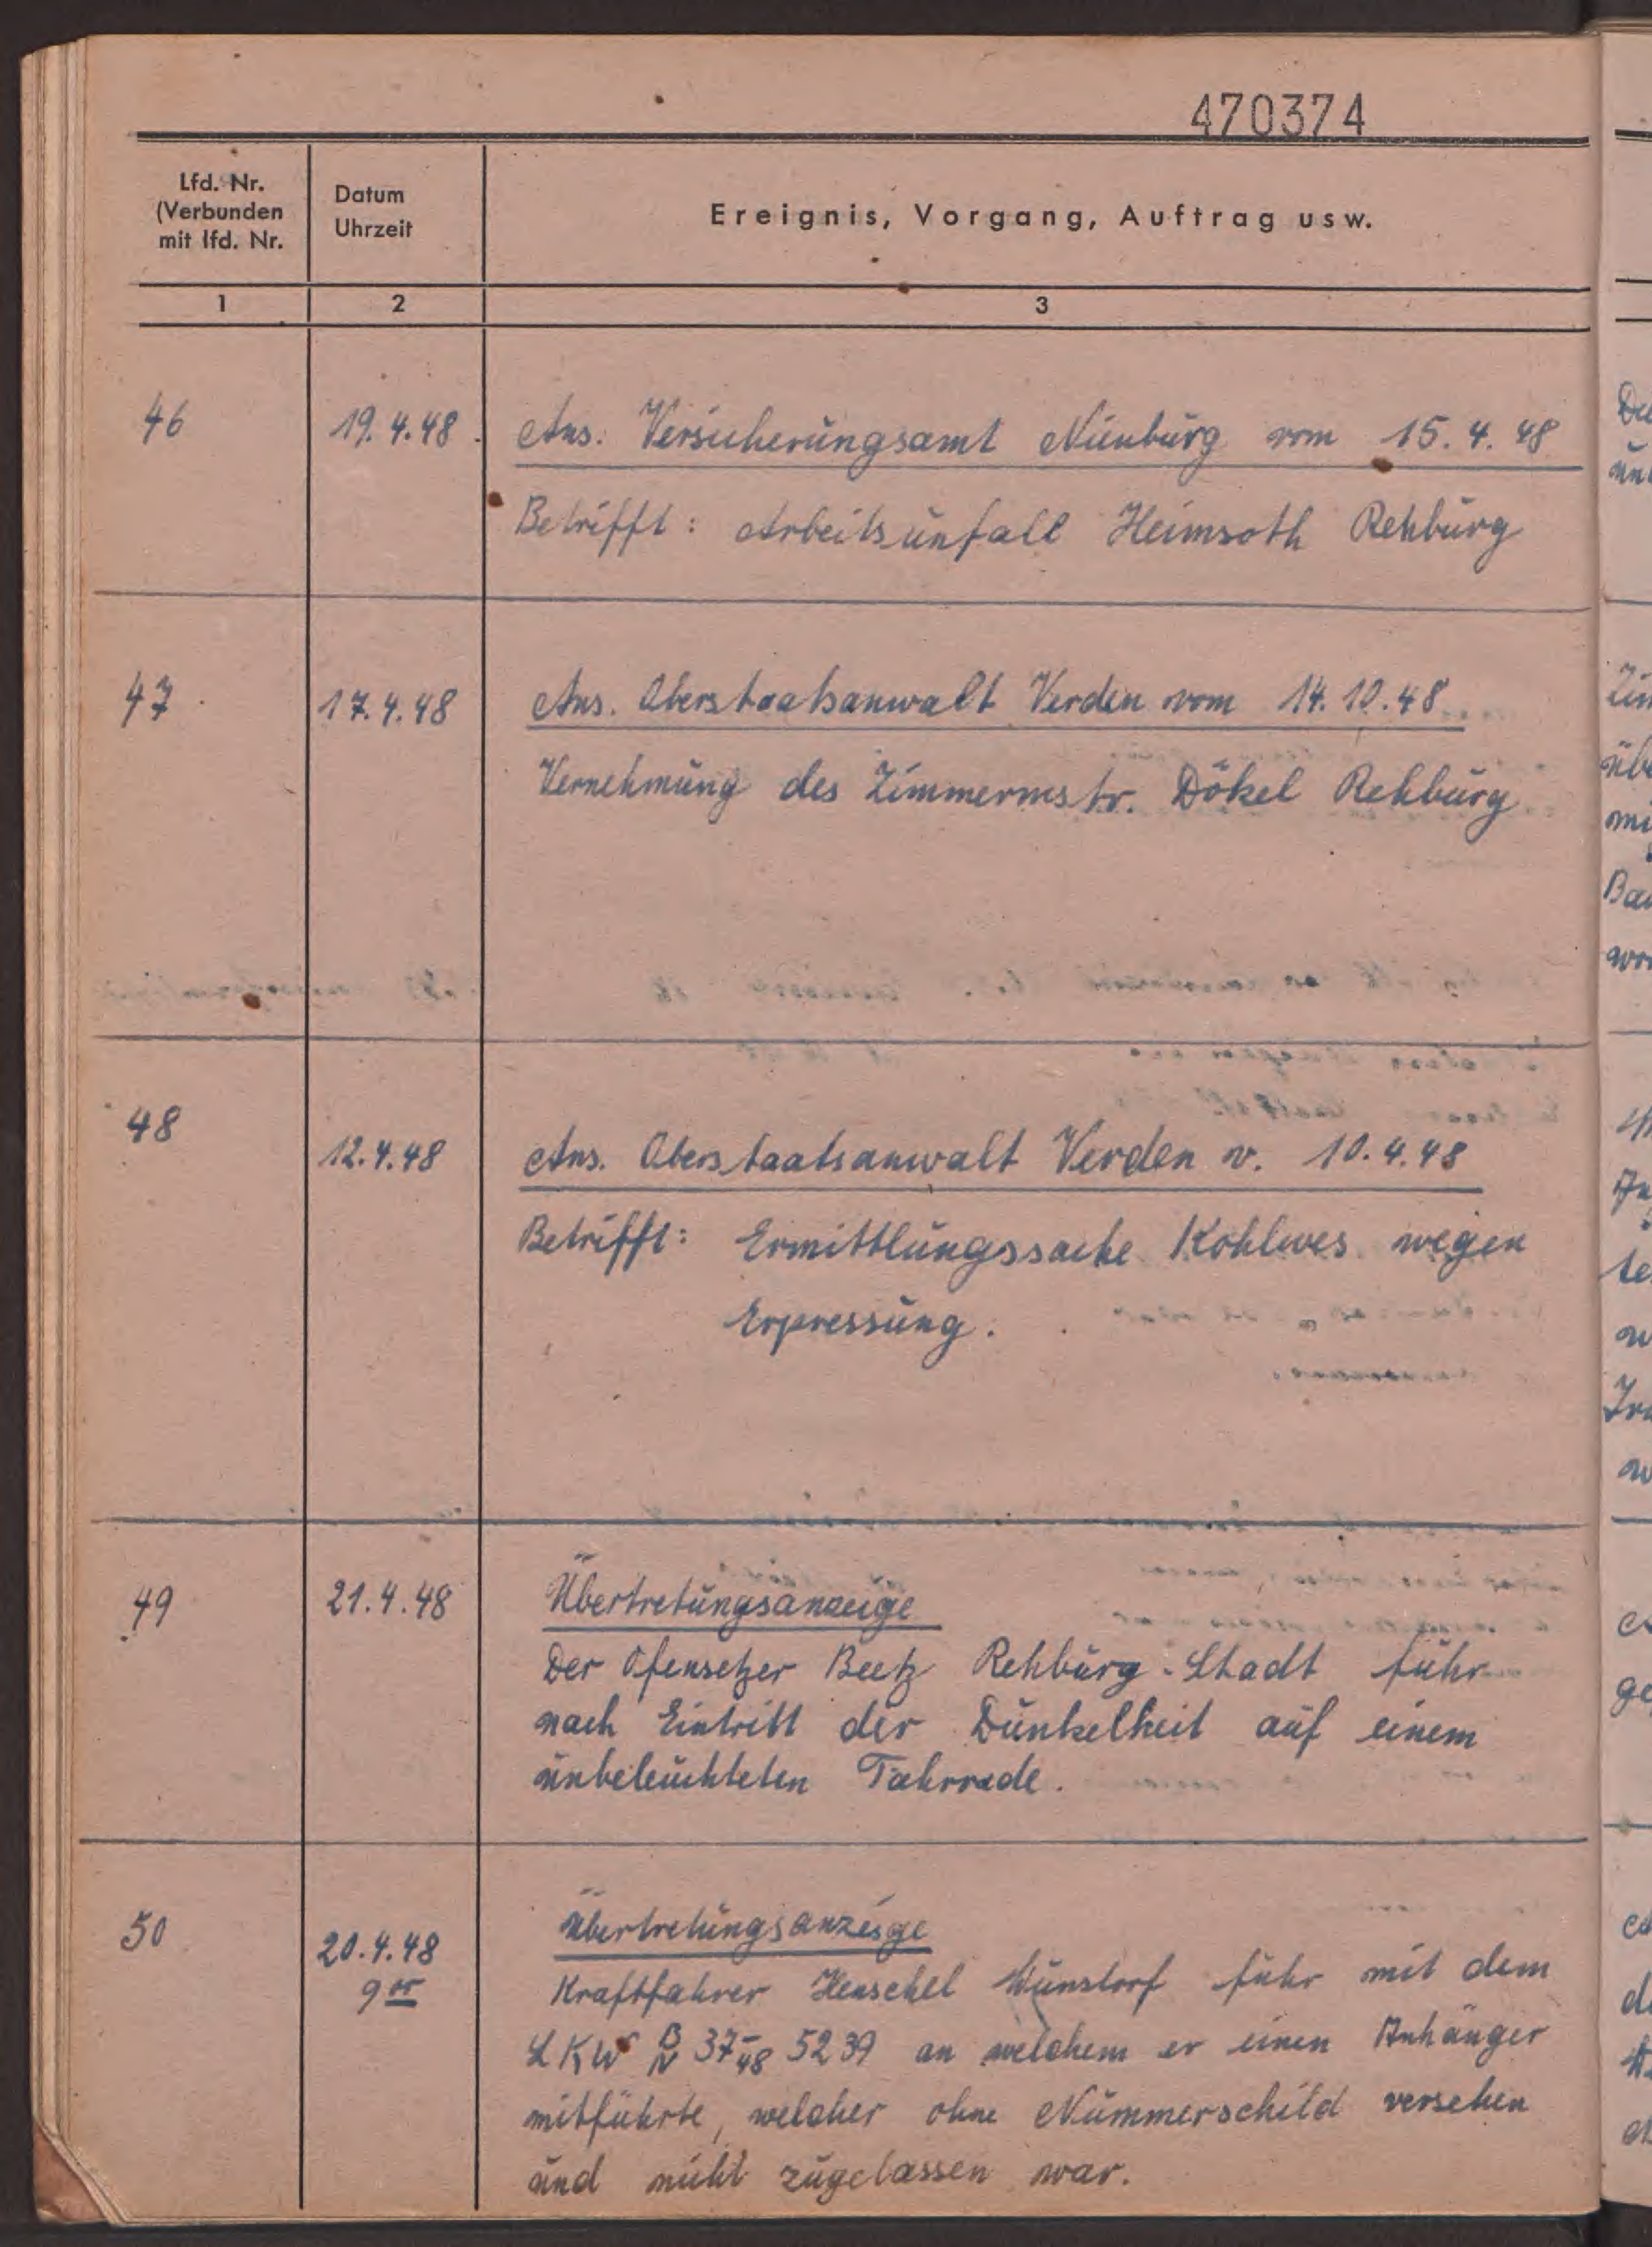 470374
Lfd. Nr.
(Verbunden
mit lfd. Nr.
Datum
Uhrzeit
Ereignis, Vorgang, Auftrag usw.
1 2 3
46 19.4.48. Ans. Versicherungsamt Nienburg vom 15.4.48
Betrifft: Arbeitsunfall Heimsoth Rehburg
47 17.4.48 Ans. Oberstaatsanwalt Verden vom 14.10.48
Vernehmung des Zimmermstr. Dökel Rehburg
48 12.4.48 Ans. Oberstaatsanwalt Verden v. 10.4.48
Betrifft: Ermittlungssache Kohlwes wegen
Erpressung.
49 21.4.48 Übertretungsanzeige
Der Ofensetzer Beetz Rehburg-Stadt fuhr
nach Eintritt der Dunkelheit auf einem
unbeleuchteten Fahrrade.
50 20.4.48 Übertretungsanzeige
9 00 Kraftfahrer Henschel Wunstorf fuhr mit dem
LKW B/N 37-48 5239 an welchem er einen Anhänger
mitführte, welcher ohne Nummerschild versehen
und nicht zugelassen war.